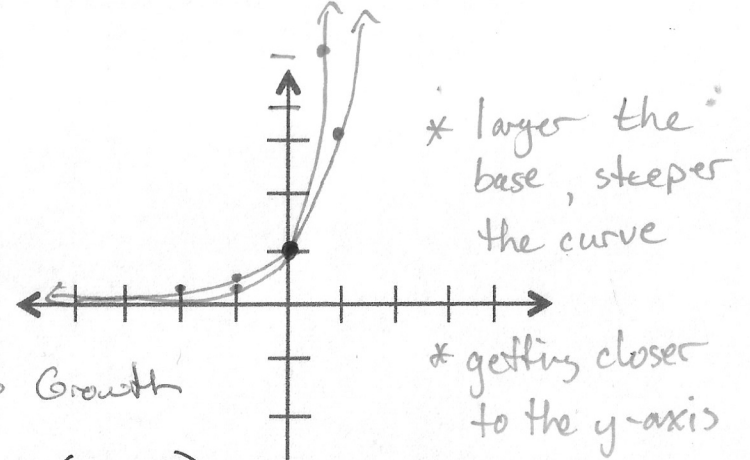 * larger the
base, steeper
the curve
* getting closer
to the y-axis
Growth